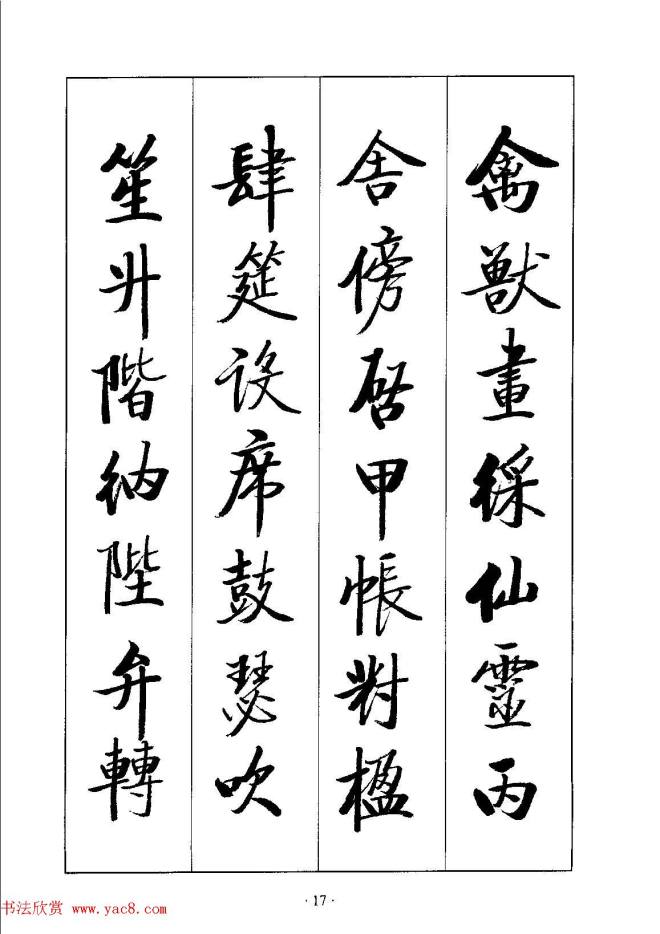 禽獸畫綵仙靈丙
舍傍啓甲帳對楹
肆筵设席鼓瑟吹
笙升階納陛弁轉
·17·
书法欣赏 www.yac8.com